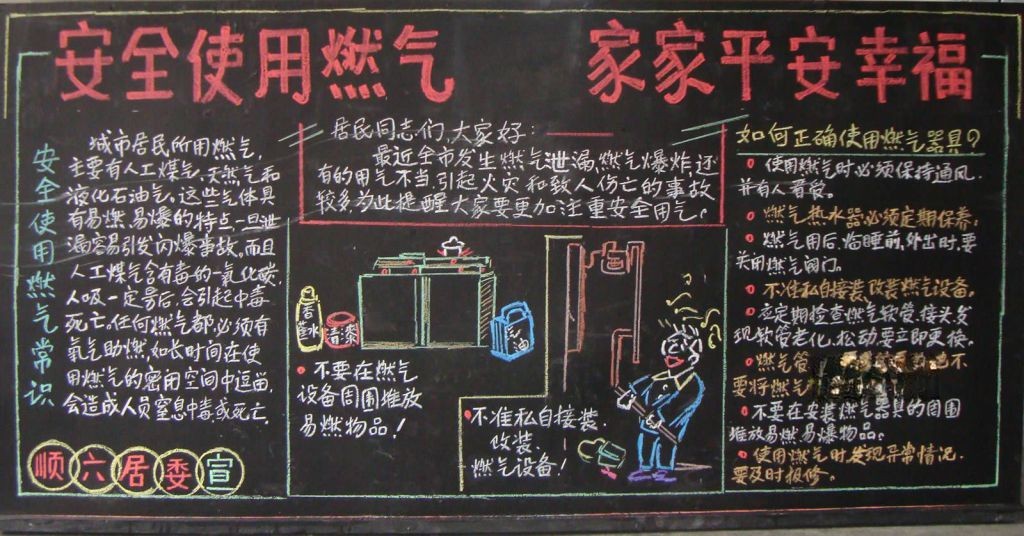 安全使用燃气 家家平安幸福
安全使用燃气常识
城市居民所用燃气,
主要有人工煤气,天然气和
液化石油气。这些气体具
有易燃、易爆的特点,一旦泄
漏容易引发闪爆事故。而且
人工煤气含有毒的一氧化碳,
人吸一定号后,会引起中毒
死亡。任何燃气都必须有
氧气助燃,如长时间在使
用燃气的密用空间中逗畄,
会造成人员窒息中毒或死亡.
顺六居委宣
居民同志们,大家好:
最近全市发生燃气泄漏,燃气爆炸,还
有的用气不当,引起火灾和致人伤亡的事故
较多,为此提醒大家要更加注重安全用气。
香蕉水
青漆
油
不要在燃气
设备周围堆放
易燃物品!
不准私自接装.
改装.
燃气设备!
如何正确使用燃气器具?
使用燃气时必须保持通风.
并有人看管。
燃气热水器必须定期保养;
燃气用后,临睡前,外出时,要
关闭燃气阀门。
不准私自接装、改装燃气设备。
应定期检查燃气软管、接头,发
现软管老化、松动要立即更换。
燃气管 不
要将燃气
不要在安装燃气器具的周围
堆放易燃易爆物品;
使用燃气时发现异常情况.
要及时报修。